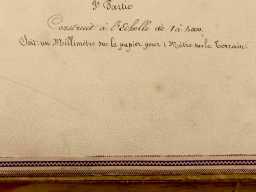 3e Partie
Construit à l'Echelle de 1 à 1000,
Soit: un Millimètre sur le papier pour 1 Mètre sur le Terrain.